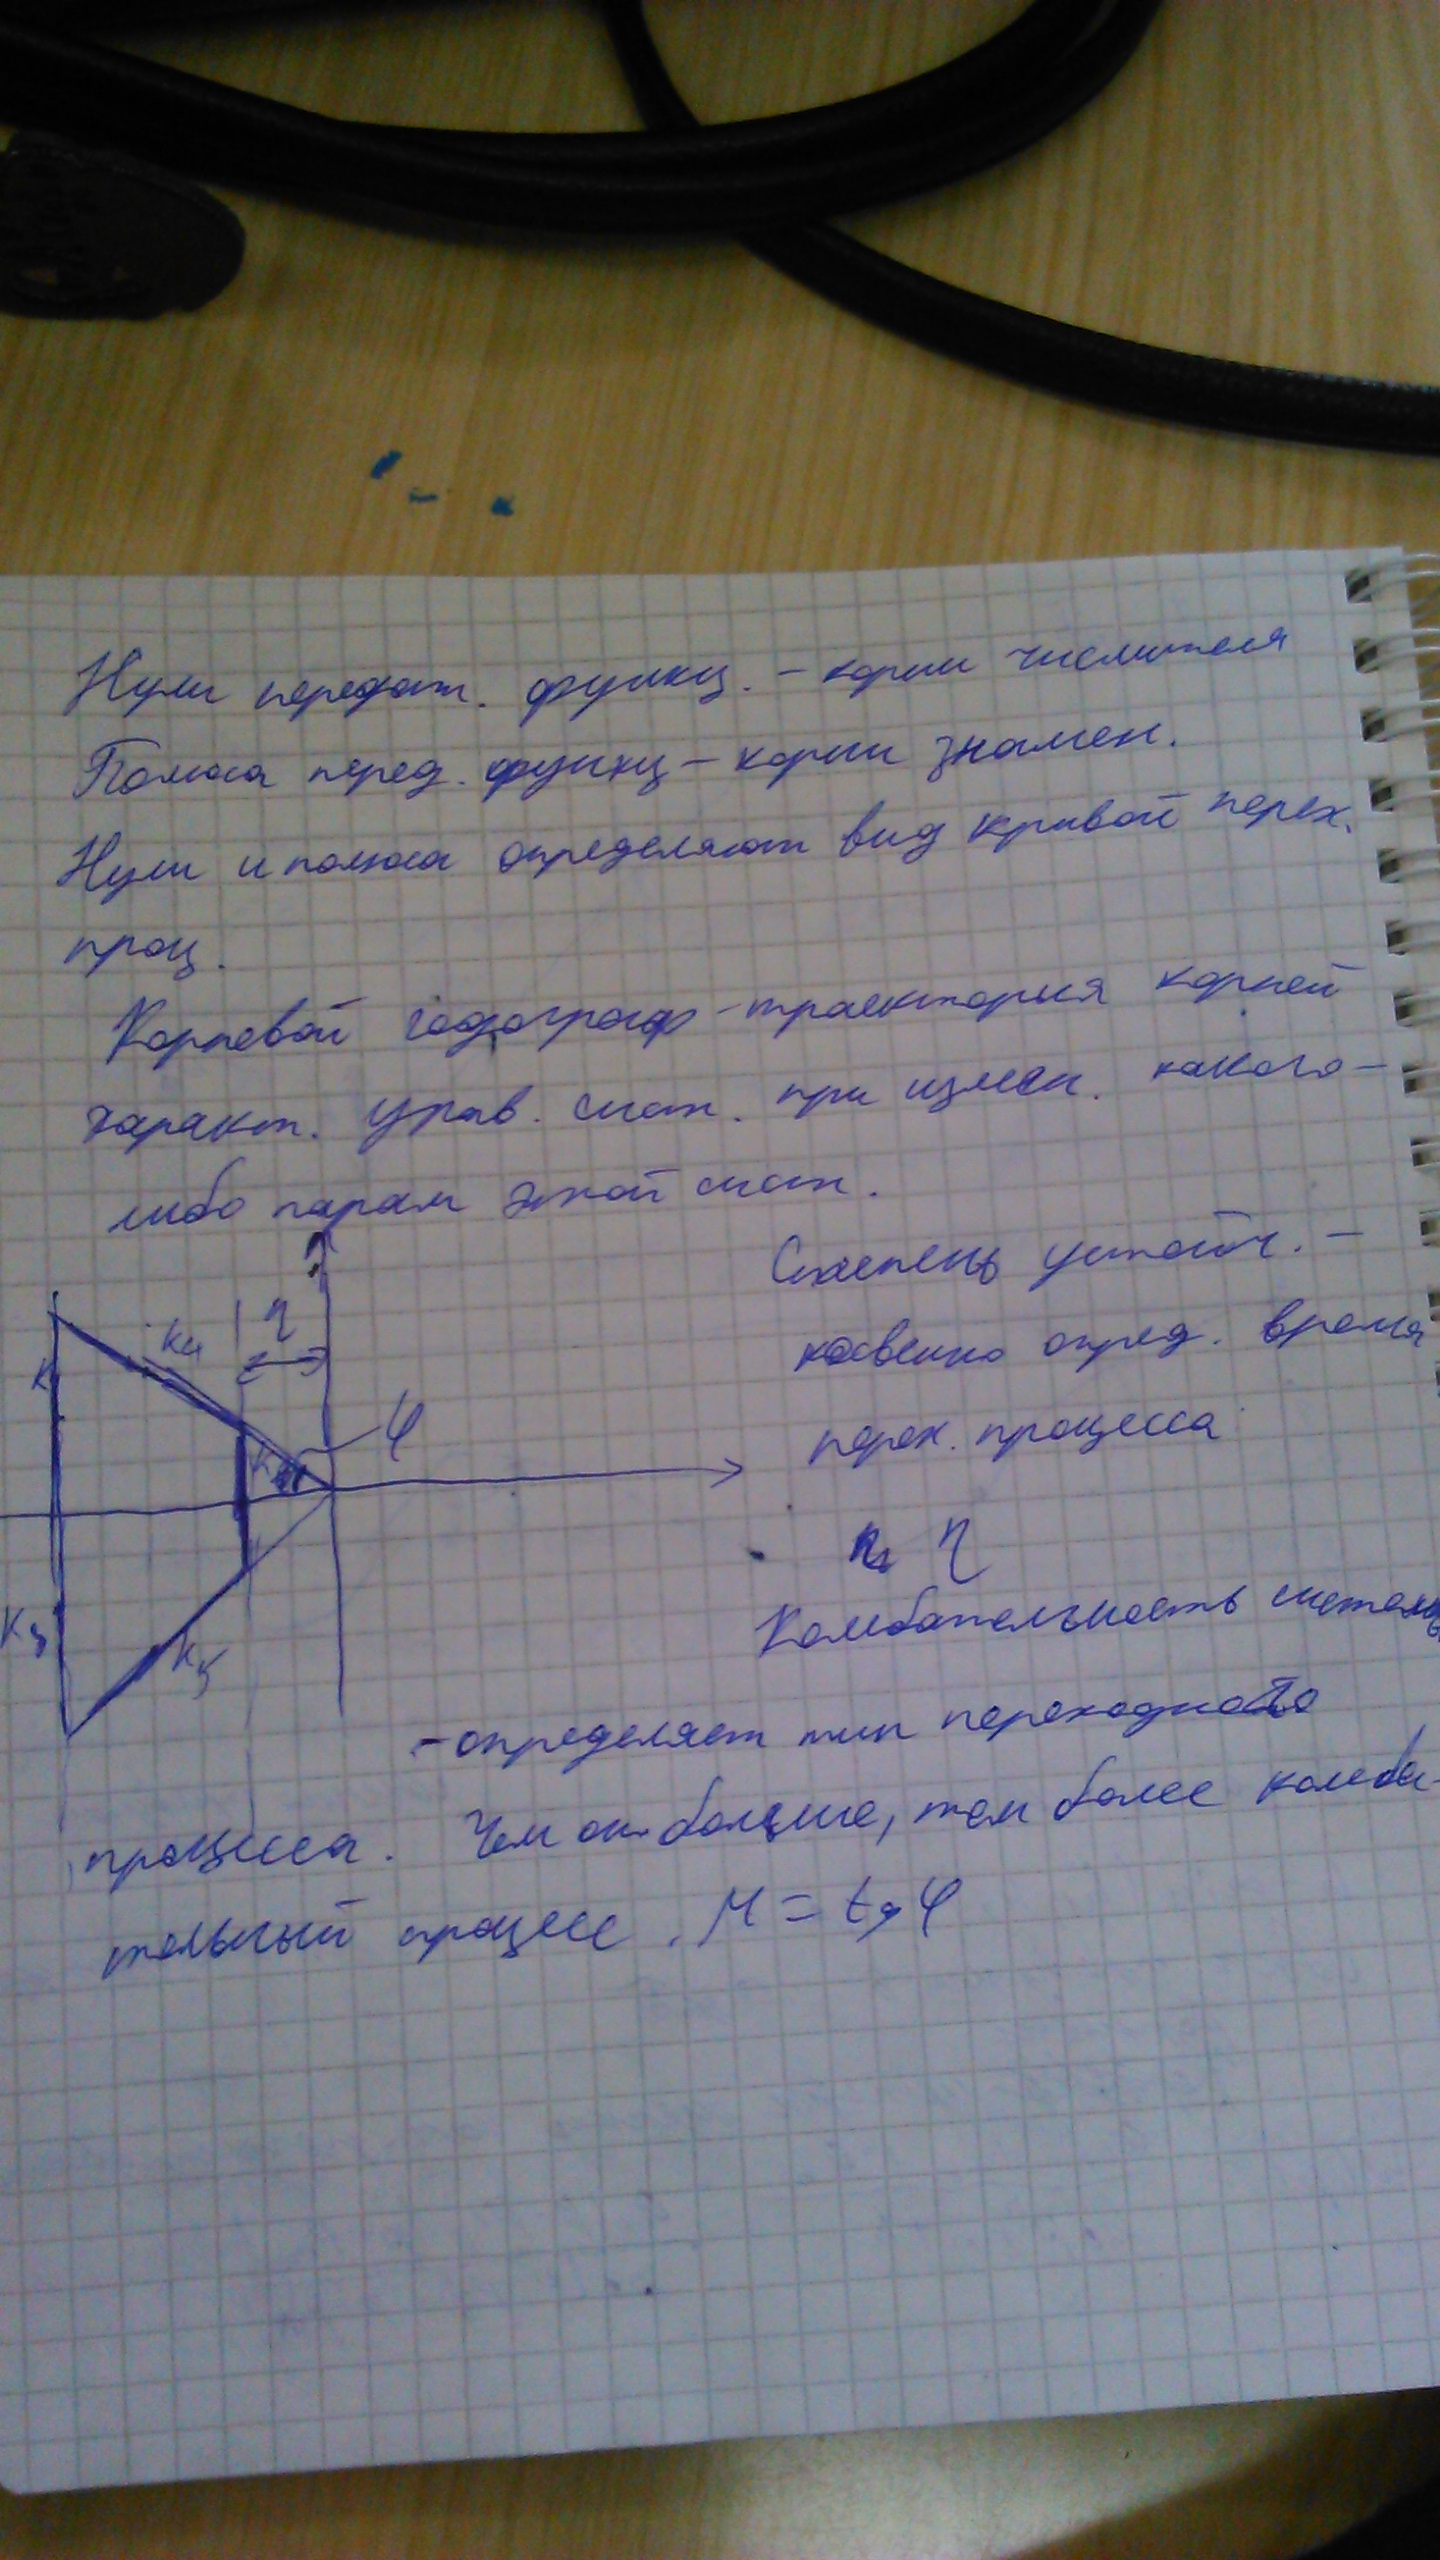 Нули передат. функц. – корни числителя
Полюса перед. функц – корни знамен.
Нули и полюса определяют вид кривой перех.
проц.
Корневой годограф – траектория корней
характ. урав. сист. при измен. какого-
либо парам этой сист.
Степень устойч. –
косвенно опред. время
перех. процесса
η
η
K4
K
φ
K
K3
K5
Колебательность системы
– определяет тип переходного
процесса. Чем он больше, тем более колеба-
тельный процесс. M = tg φ